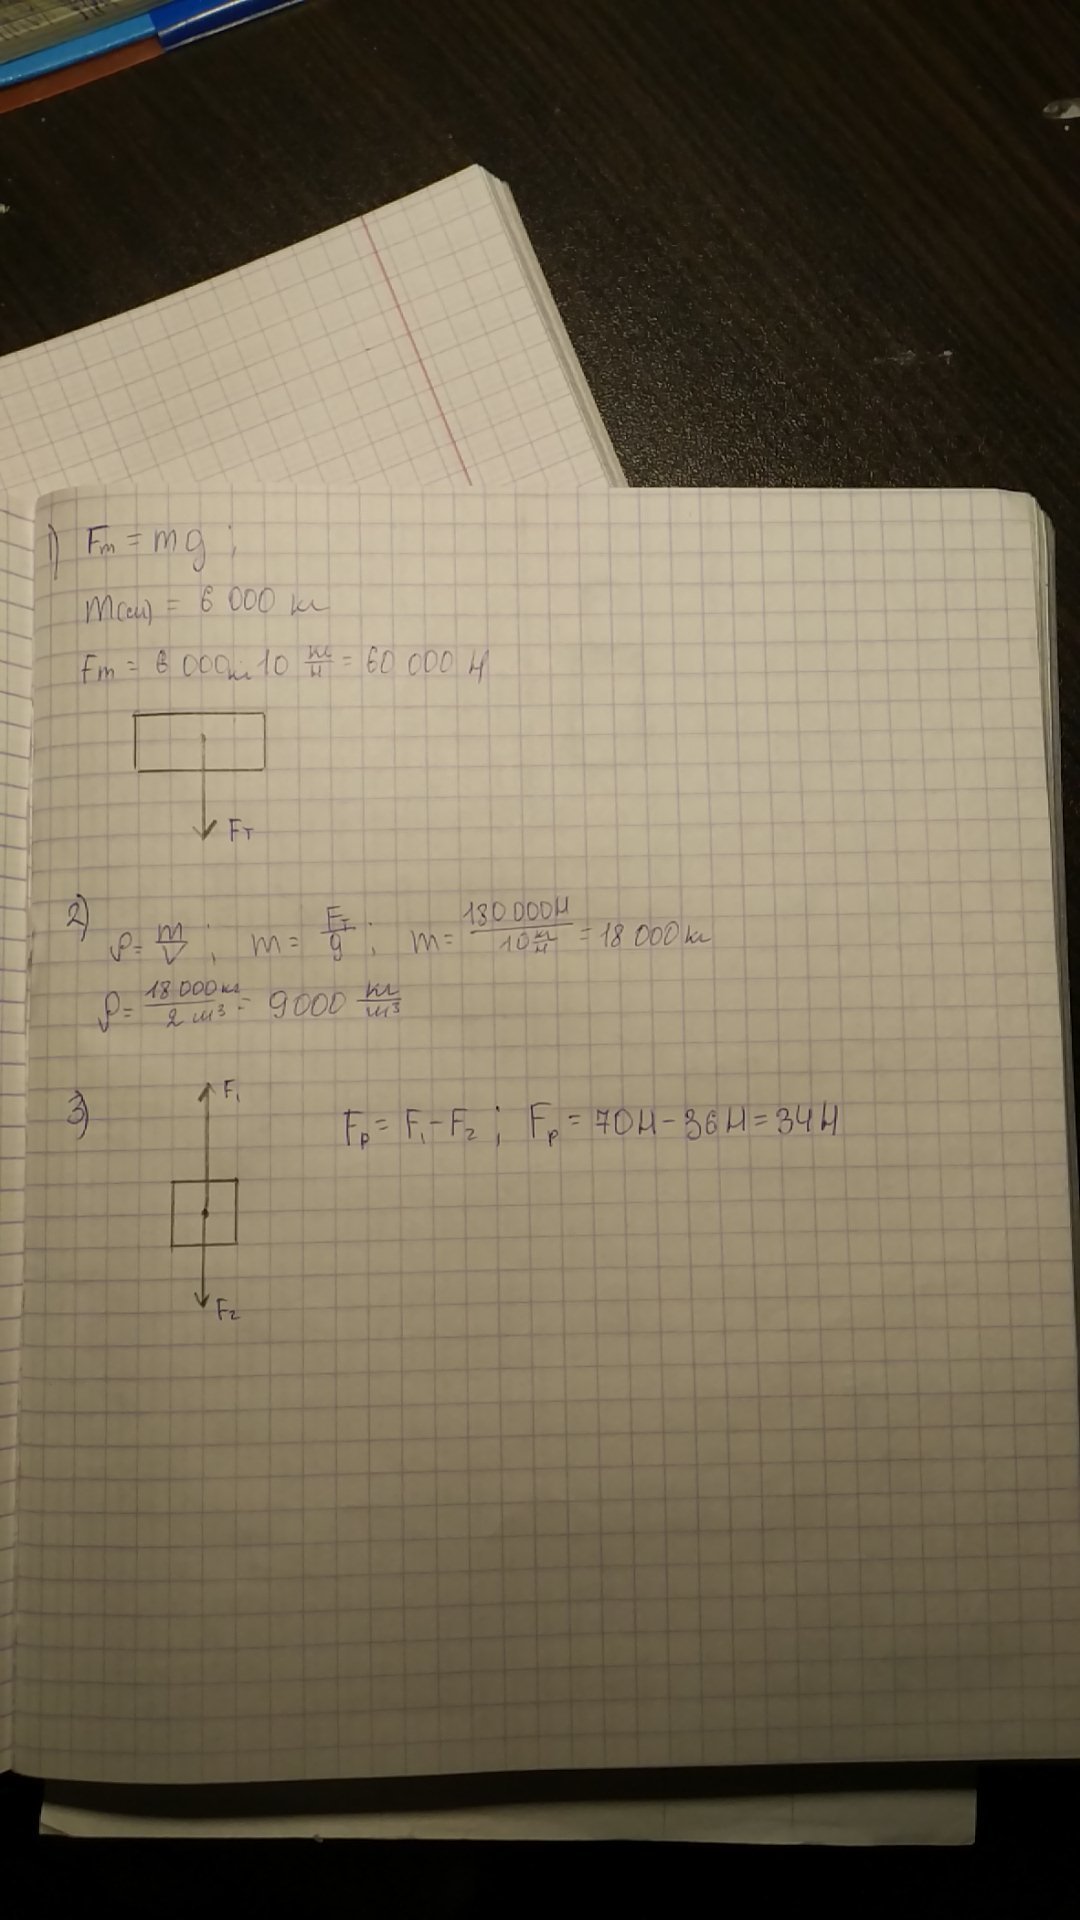 1) Fт = mg ;
m(см) = 6 000 кг
Fт = 6 000кг·10 кг/Н = 60 000 Н
Fт
2) ρ = m/V ; m = Fт/g ; m = 180 000Н/10 кг/Н = 18 000 кг
ρ = 18 000кг/2 м³ = 9000 кг/м³
3) F₁
Fр = F₁ - F₂ ; Fр = 70Н - 36Н = 34Н
F₂